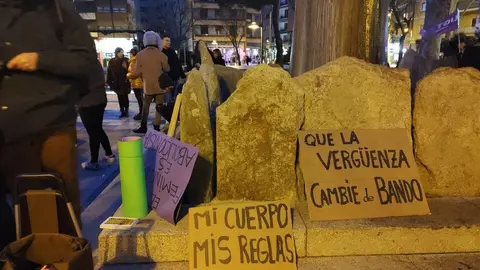 QUE LA
VERGÜENZA
CAMBIE de BANDO
MI CUERPO
MIS REGLAS
ABOLICIONISTA
ES
FEMIN